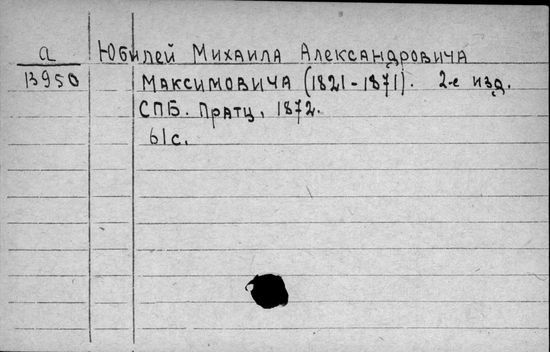 а
13950
Юбилей Михаила Александровича
Максимовича (1821-1871). 2-е изд.
СПБ. Пратц, 1872.
61 с.